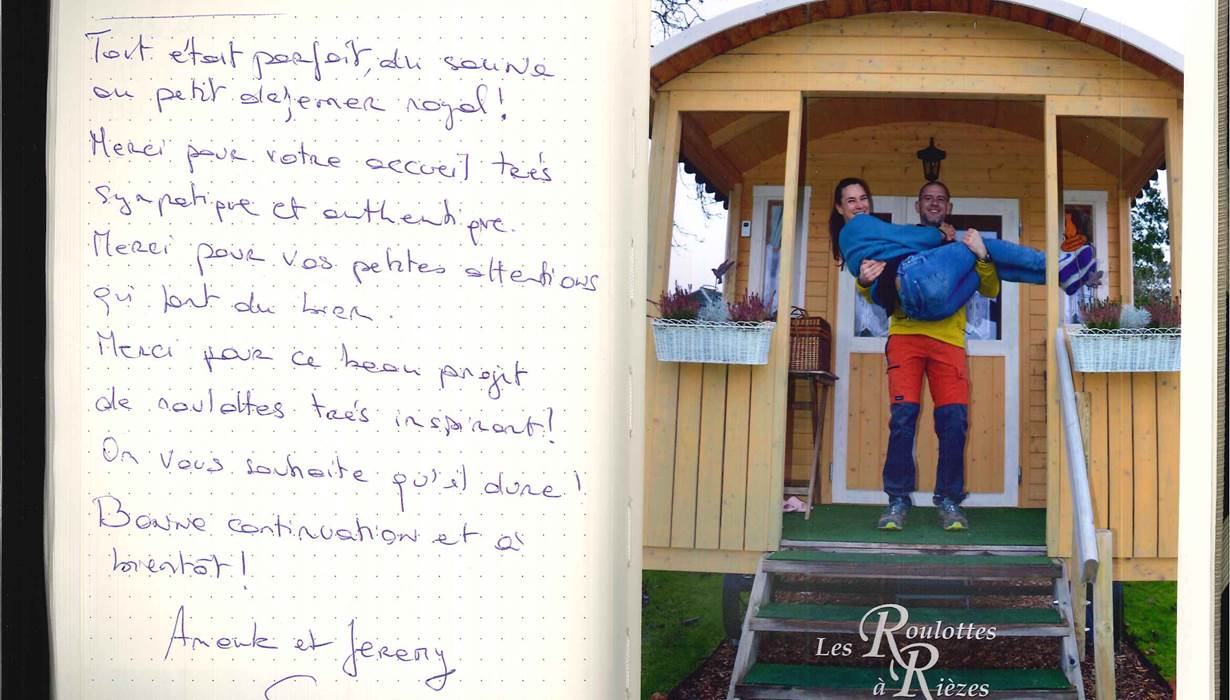 Tout était parfait, du sauna
au petit dejeuner royal !
Merci pour votre accueil très
sympatique et authentique.
Merci pour vos petites attentions
qui font du bien.
Merci pour ce beau projet
de roulottes très inspirant !
On vous souhaite qu'il dure !
Bonne continuation et à
bientôt !
Anouk et Jeremy
Les Roulottes
à Rièzes